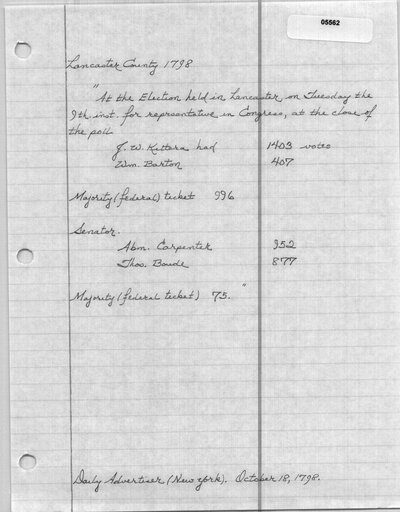 05562
Lancaster County 1798
"At the Election held in Lancaster on Tuesday the
9th inst. for representative in Congress, at the close of
the poll
J. W. Kittera had 1403 votes
Wm. Barton 407
Majority (federal) ticket 996
Senator.
Abm. Carpenter 952
Thos. Boude 877
Majority (federal ticket) 75."
Daily Advertiser (New York). October 18, 1798.